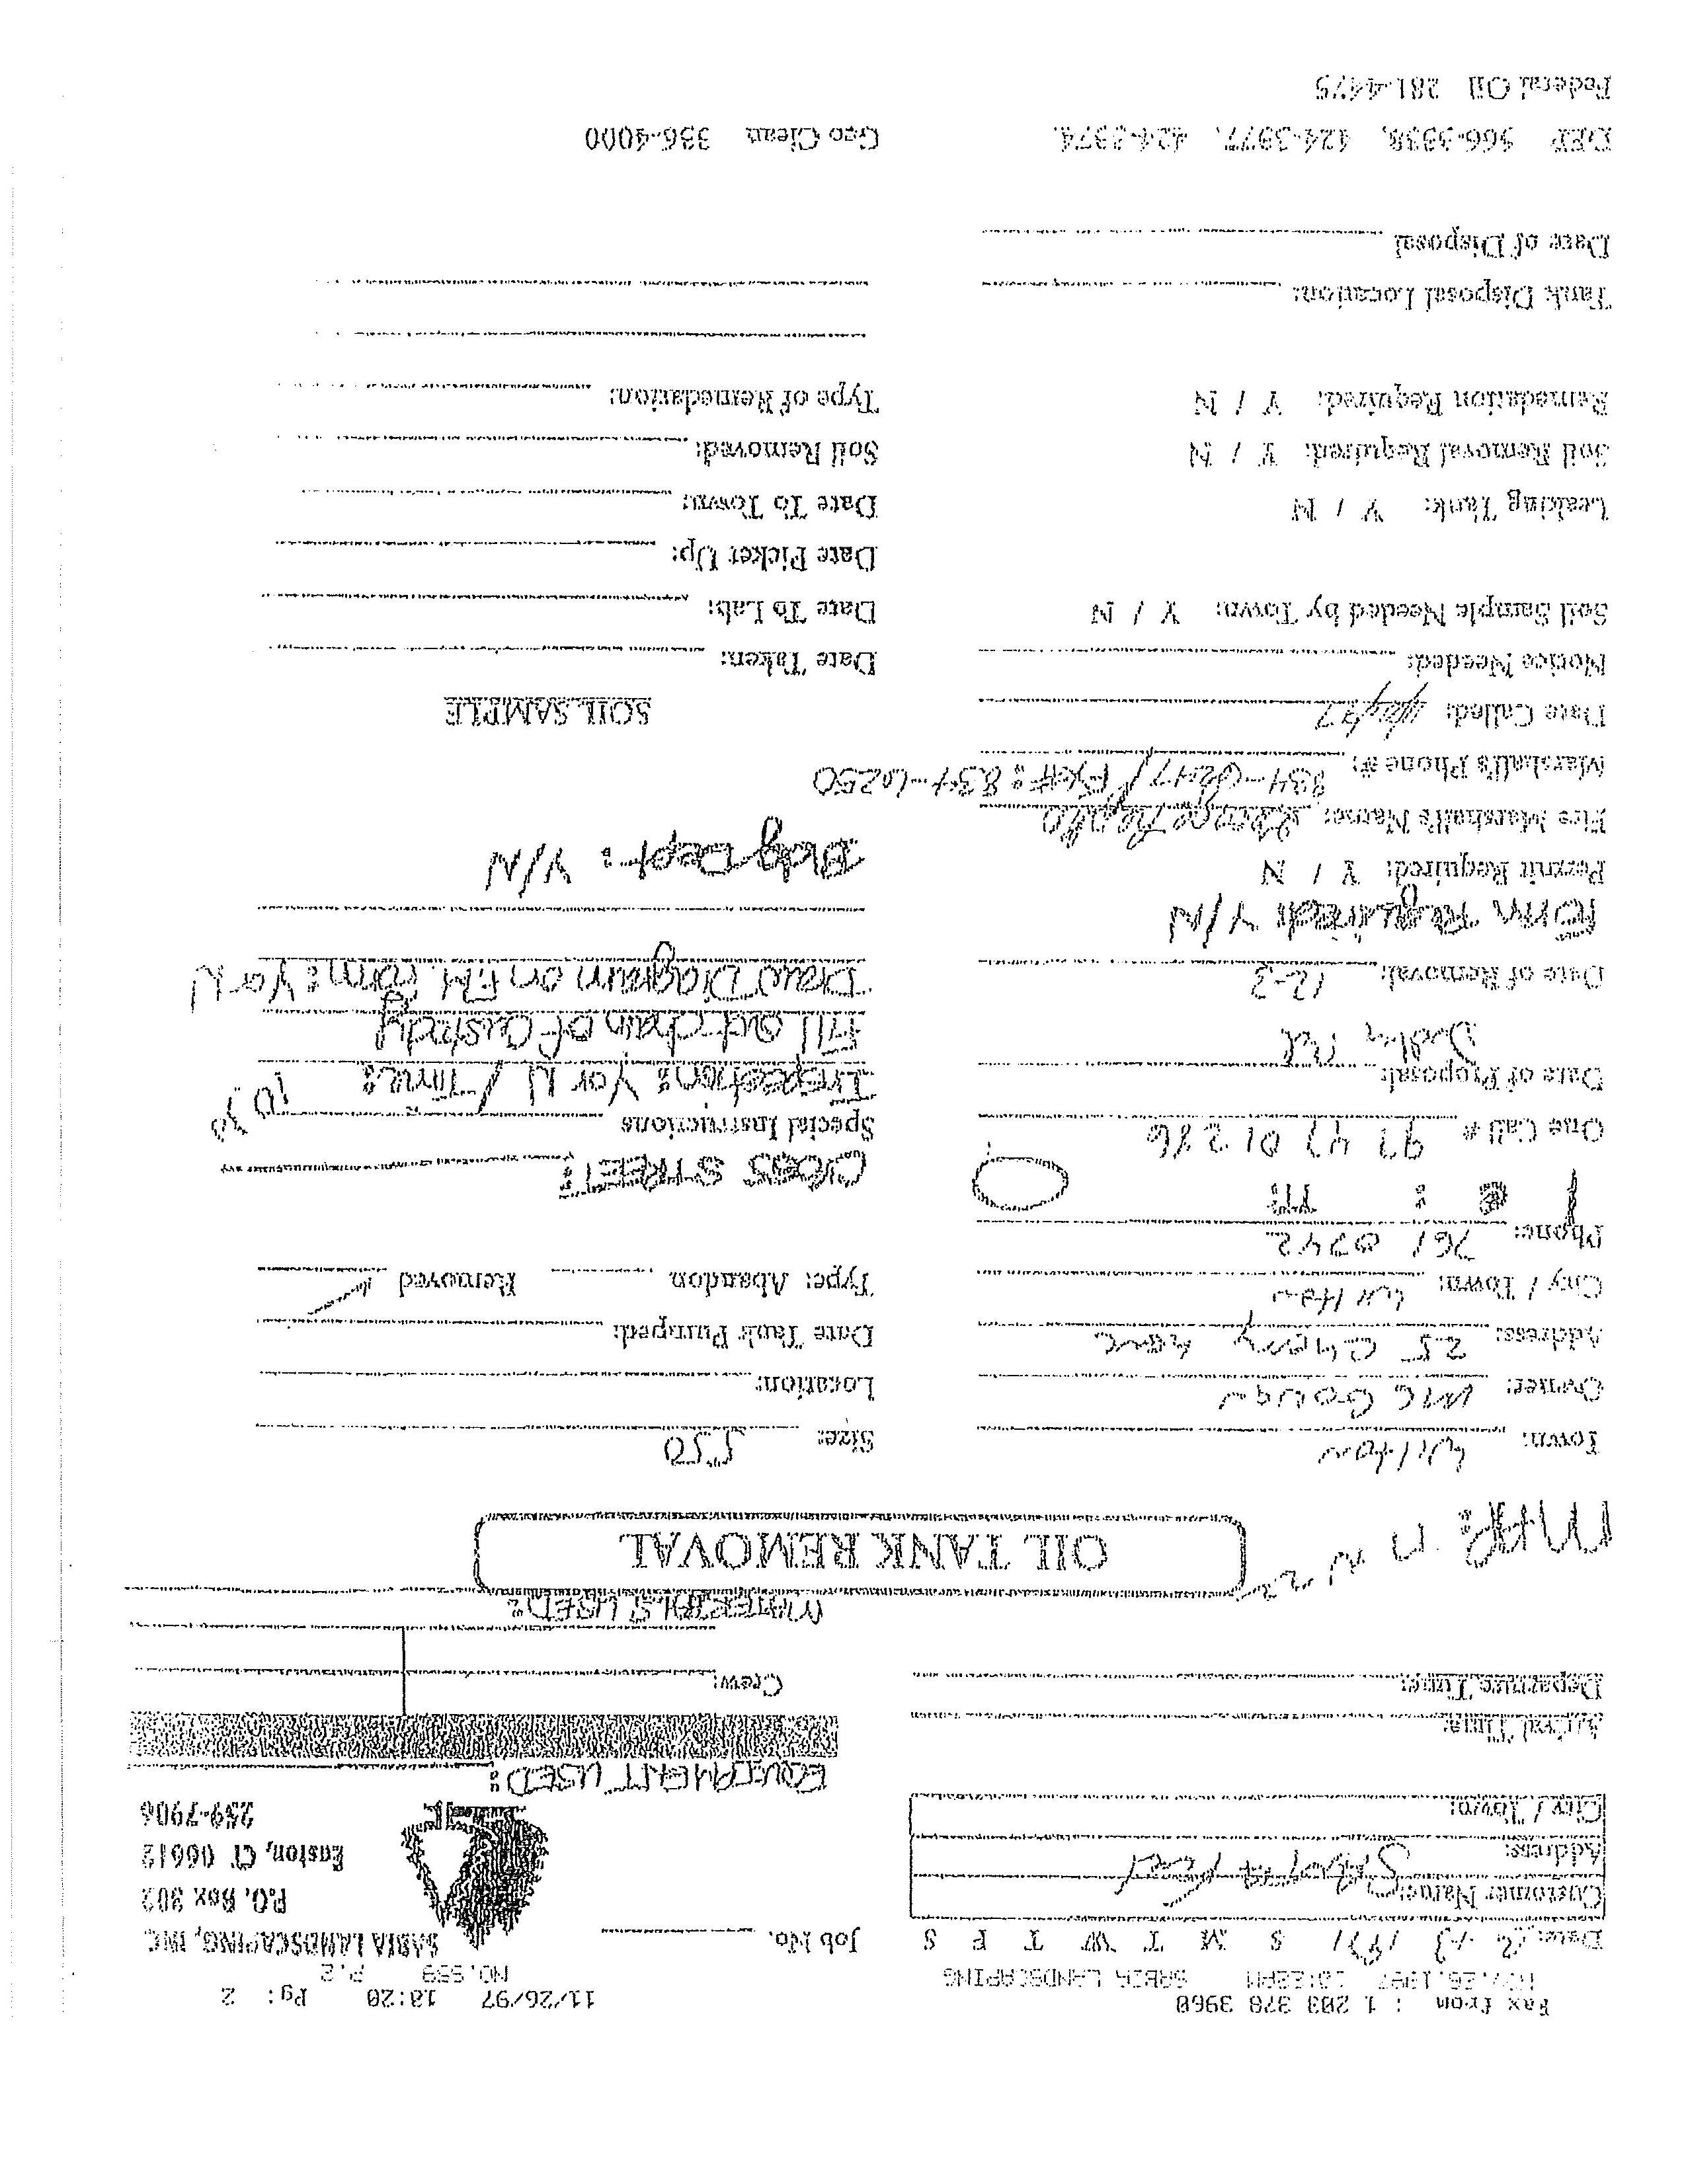 Fax from : 1 203 378 3960 11/26/97 18:20 Pg: 2
NOV.26.1997 10:22AM SABIA LANDSCAPING NO.559 P.2
Date: 12 /3 /97/ S M T W T F S Job No.
SABIA LANDSCAPING, INC.
P.O. Box 302
Easton, CT 06612
259-7906
Customer Name:
Address:
City / Town:
EQUIPMENT USED:
Arrival Time:
Departure Time:
Crew:
MATERIALS USED:
OIL TANK REMOVAL
MAP:
Town: Wilton Size: 550
Owner: McGowan Location:
Address: 25 Cherry Lane Date Tank Pumped:
City / Town: Wilton Type: Abandon Removed ✓
Phone: 761 0742
@ : m
CROSS STREET:
One Call # 97 47 01286 Special Instructions
Date of Proposal: Inspection: Y or N / Time: 10:30
Fill out chain of custody
Date of Removal: 12-3 Draw Diagram on F.M. Form: Y or N
Form Required: Y/N
Permit Required: Y / N Bldg Dept: Y/N
Fire Marshall's Name:
Marshall's Phone #: 834-6247 / FX#: 834-6250
Date Called: SOIL SAMPLE
Notice Needed: Date Taken:
Soil Sample Needed by Town: Y / N Date To Lab:
Date Picket Up:
Leaking Tank: Y / N Date To Town:
Soil Removal Required: Y / N Soil Removed:
Remedation Required: Y / N Type of Remedation:
Tank Disposal Location:
Date of Disposal
DEP 566-3338, 424-3377, 424-3374. Geo Clean 336-4000
Federal Oil 281-4475